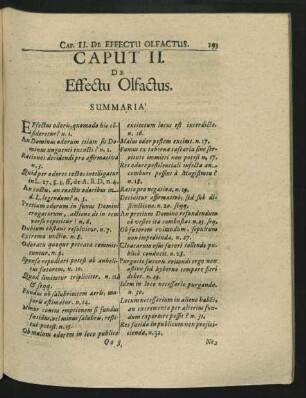 CAP. II. DE EFFECTU OLFACTUS. 293
CAPUT II.
DE
Effectu Olfactus.
SUMMARIA
Effectus odoris, quomodo hic consideretur? n. 1.
An Dominus odorum etiam sit Dominus unguenti excocti? n. 2.
Rationes decidendi pro affirmativa n. 3.
Quid per odores coctos intelligatur
in L. 27. §. 1. ff. de A. R. D. n. 4.
An coctos, an exactos odoribus in
d. L. legendum? n. 5.
Pretium odorum in funus Domini
erogatorum, actione in rem verso repetitur? n. 6.
Dubium obstans resolvitur. n. 7.
Extrema unctio. n. 8.
Odoratu quoque peccata committuntur. n. 9.
Sponso repudiari potest ob anhelitus foetorem. n. 10.
Quod limitatur tripliciter. n. 11.
& seqq.
Fundus ob salubritatem aeris, majoris aestimatur. n. 14.
Minor contra emptionem si fundus
sit minus salubris, restitui potest. n. 15.
Ob malum odorem in loco publico
excoctum locus est interdicto.
n. 16.
Malus odor pestem excitat. n. 17.
Fumus ex taberna casearia sine servitute immitti non potest n. 18.
Res odore pestilentiali infecta an
comburi possint à Magistratu? n. 18.
Ratio pro negativa. n. 19.
Deciditur affirmativè; sed sub distinctione. n. 20. seqq.
An pretium Domino refundendum
ob vestes sic combustas n. 25.
Ob foetorem evitandum, sepultura
non impedienda. n. 27.
Cloacarum usus foetore tollendo publicè conducit. n. 28.
Purgatio foetore evitandi ergo non
aestivo sed hyberno tempore fieri
debet. n. 29.
Idem in loco necessario purgando.
n. 30.
Locum necessarium in alienis habens,
an excrementa per alterius fundum exportare possit? n. 31.
Res foetida in publicum non projicienda. n. 32.
Oo 3
No-